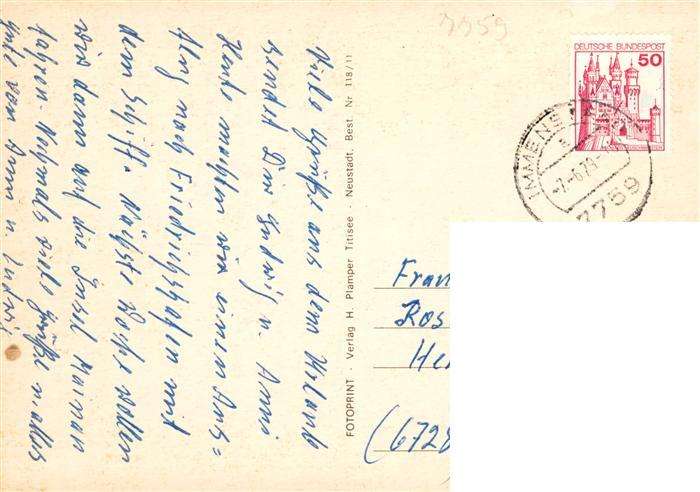 7759
DEUTSCHE BUNDESPOST
50
IMMENS
-7.-6.79-
7759
Viele Grüße aus dem Urlaub
sendet Dir Ludwig u. Anni
Heute machten wir einen Aus=
flug nach Friedrichshafen mit
dem Schiff. Nächste Woche wollen
wir dann auf die Insel Mainau
fahren. Nochmals viele Grüße u. alles
Gute von Anni u. Ludwig
FOTOPRINT - Verlag H. Plamper Titisee - Neustadt. Best. Nr 118/11
Fran
Ros
He
(6728